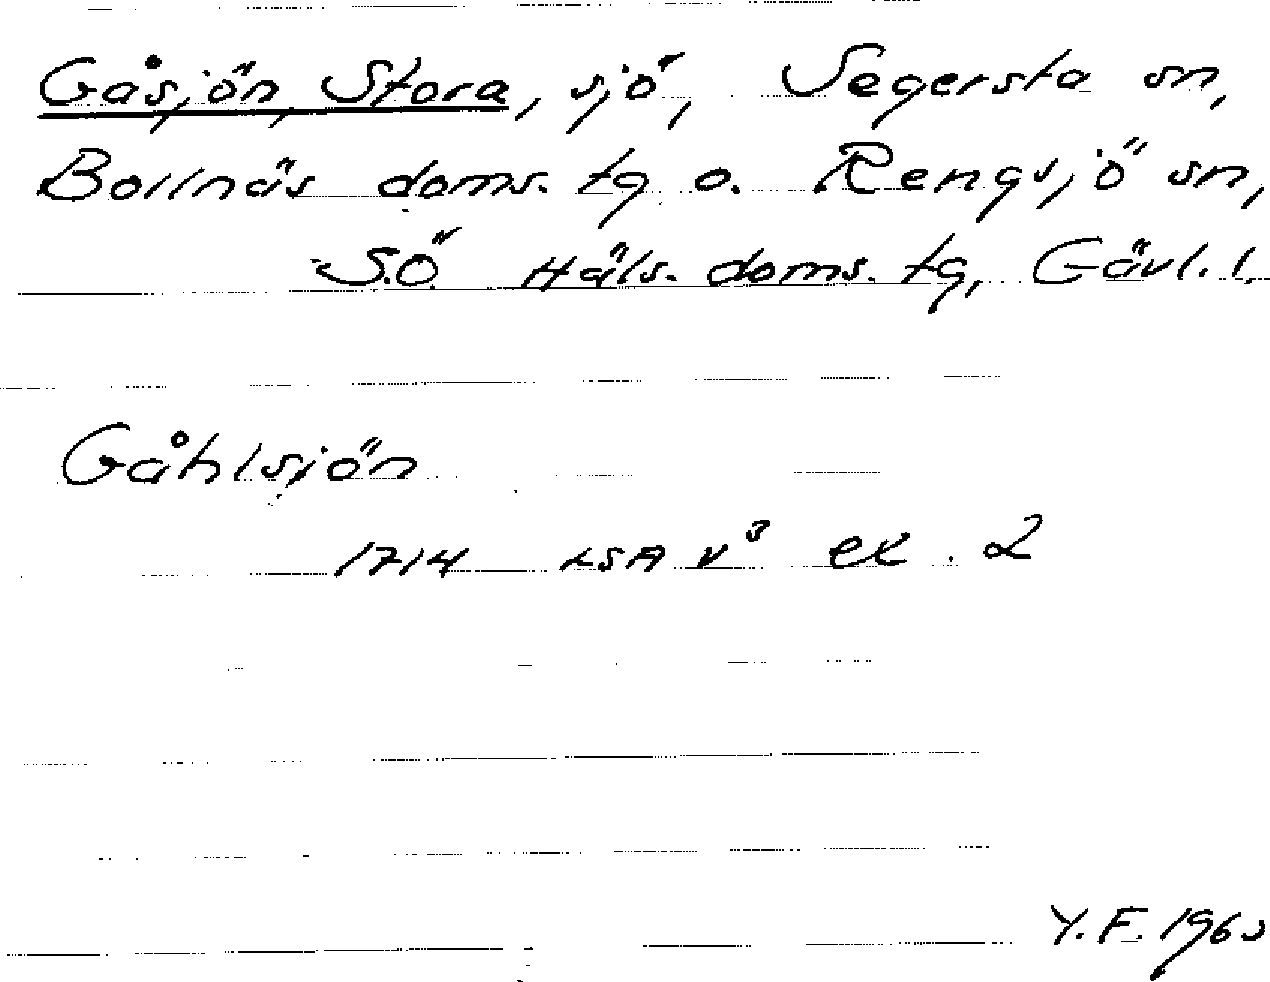 Gåsjön, Stora, sjö, Segersta sn,
Bollnäs doms. tg o. Rengsjö sn,
S.Ö Häls. doms. tg, Gävl. l.
Gåhlsjön
1714 LSA V³ ex. 2
Y.F.